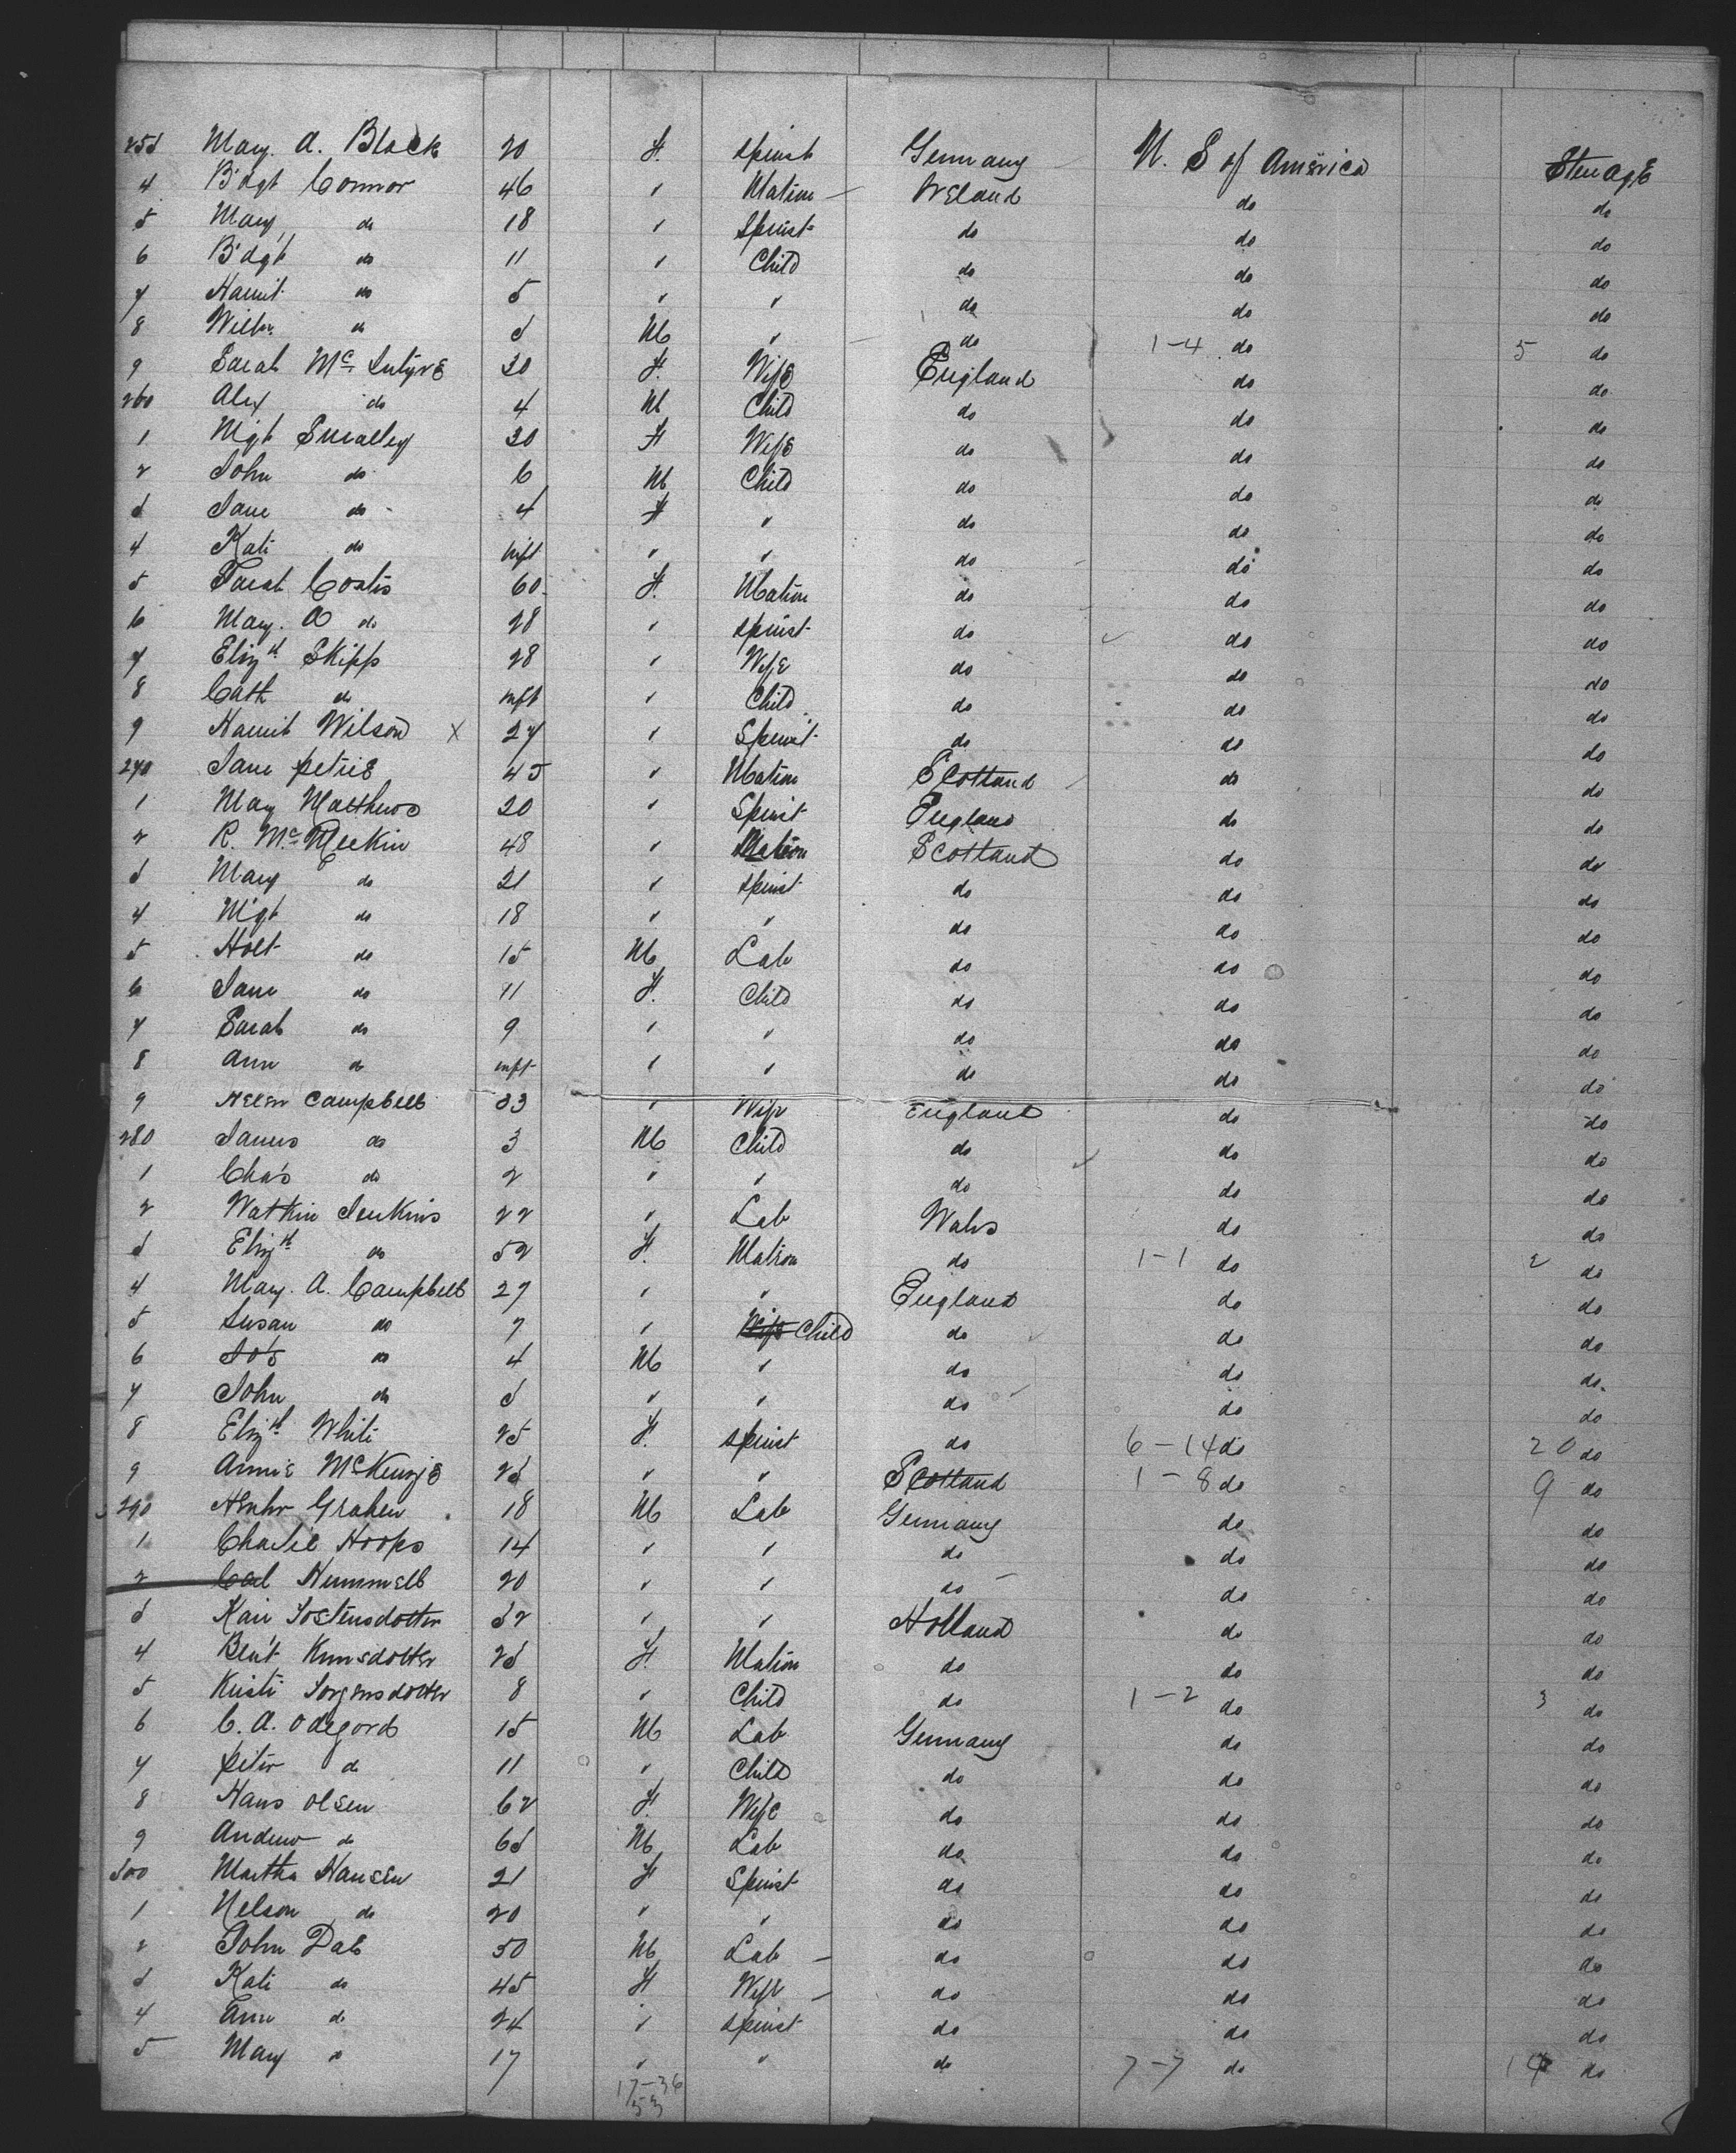 253 Mary. A. Block 20 F. Spinst Germany U. S of America Steerage
4 B'dgt Connor 46 " Matron Ireland do do
5 Mary do 18 " Spinst do do do
6 B'dgt do 11 " Child do do do
7 Harrit do 5 " " do do do
8 Willm do 3 M " do 1-4 do 5 do
9 Sarah Mc Intyre 30 F. Wife England do do
260 Alex do 4 M Child do do do
1 Mgt Smalley 30 F Wife do do do
2 John do 6 M Child do do do
3 Jane do 4 F " do do do
4 Kate do inft " " do do do
5 Sarah Coates 60 F. Matron do do do
6 Mary. A do 28 " Spinst do do do
7 Elizth Skipp 28 " Wife do do do
8 Cath do inft " Child do do do
9 Harrit Wilson X 27 " Spinst do do do
270 Jane Petrie 45 " Matron Scotland do do
1 Mary Matthews 20 " Spinst England do do
2 R. Mc Meekin 48 " Matron Scotland do do
3 Mary do 21 " Spinst do do do
4 Mgt do 18 " " do do do
5 Holt do 15 M Lab do do do
6 Jane do 11 F. Child do do do
7 Sarah do 9 " " do do do
8 Ann do inft " " do do do
9 Helen Campbell 33 " Wife England do do
280 James do 3 M Child do do do
1 Chas do 2 " " do do do
2 Watkin Jenkins 22 " Lab Wales do do
3 Elizth do 52 F. Matron do 1-1 do 2 do
4 Mary. A. Campbell 27 " " England do do
5 Susan do 7 " Wife Child do do do
6 Jos do 4 M " do do do
7 John do 3 " " do do do
8 Elizth White 25 F. Spinst do 6-14 do 20 do
9 Annie McKenzie 23 " " Scotland 1-8 do 9 do
290 Henhr Grahen 18 M Lab Germany do do
1 Charlie Hoops 14 " " do do do
2 Carl Hummell 20 " " do do do
3 Kari Tostensdotter 32 " " Holland do do
4 Beart Knusdotter 23 F. Matron do do do
5 Kristi Jorgensdotter 8 " Child do 1-2 do 3 do
6 C. A. Odegord 15 M Lab Germany do do
7 Peter do 11 " Child do do do
8 Hans Olsen 62 F. Wife do do do
9 Andrew do 63 M Lab do do do
300 Martha Hansen 21 F Spinst do do do
1 Nelson do 20 " " do do do
2 John Dab 50 M Lab do do do
3 Kate do 45 F Wife do do do
4 Ann do 24 " Spinst do do do
5 Mary do 17 " " do 7-7 do 14 do
17-36
53